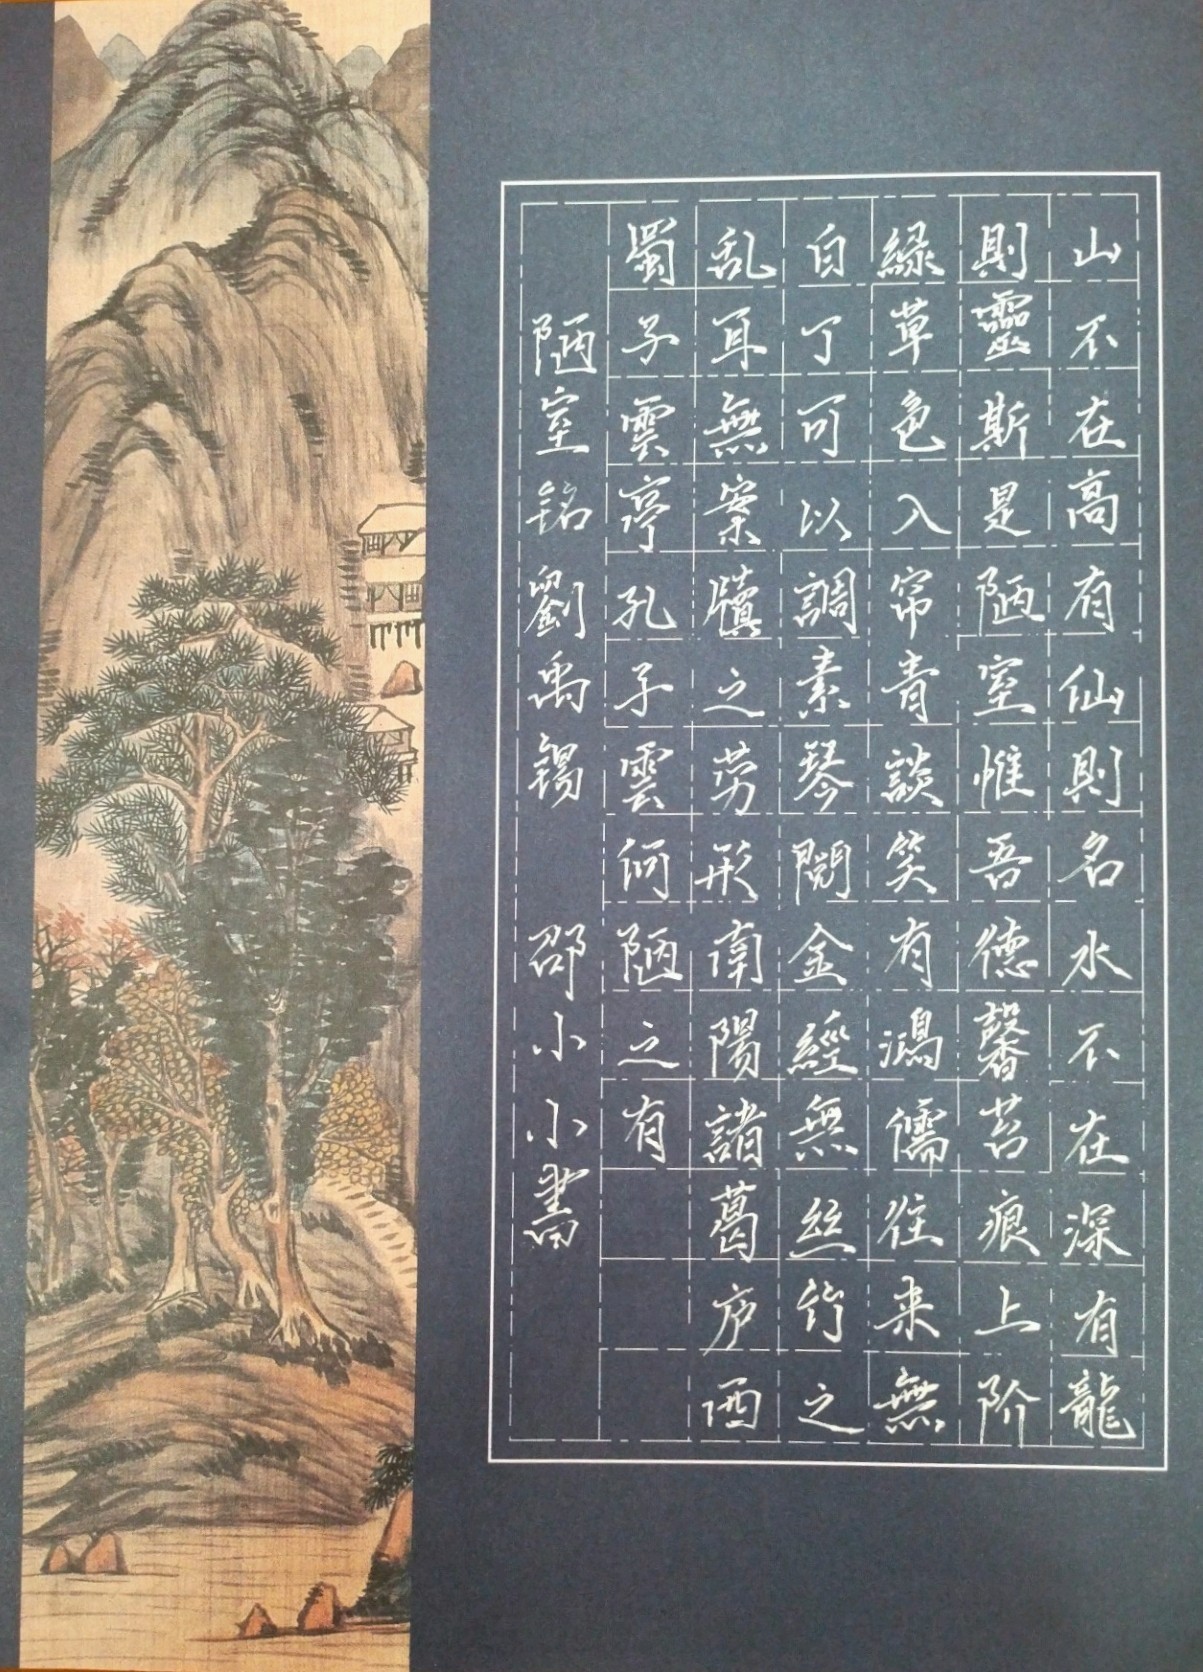 山不在高有仙則名水不在深有龍
則靈斯是陋室惟吾德馨苔痕上阶
緑草色入帘青談笑有鴻儒往来無
白丁可以調素琴閲金經無丝竹之
乱耳無案牘之劳形南陽諸葛庐西
蜀子雲亭孔子雲何陋之有
陋室铭劉禹锡 邵小小書